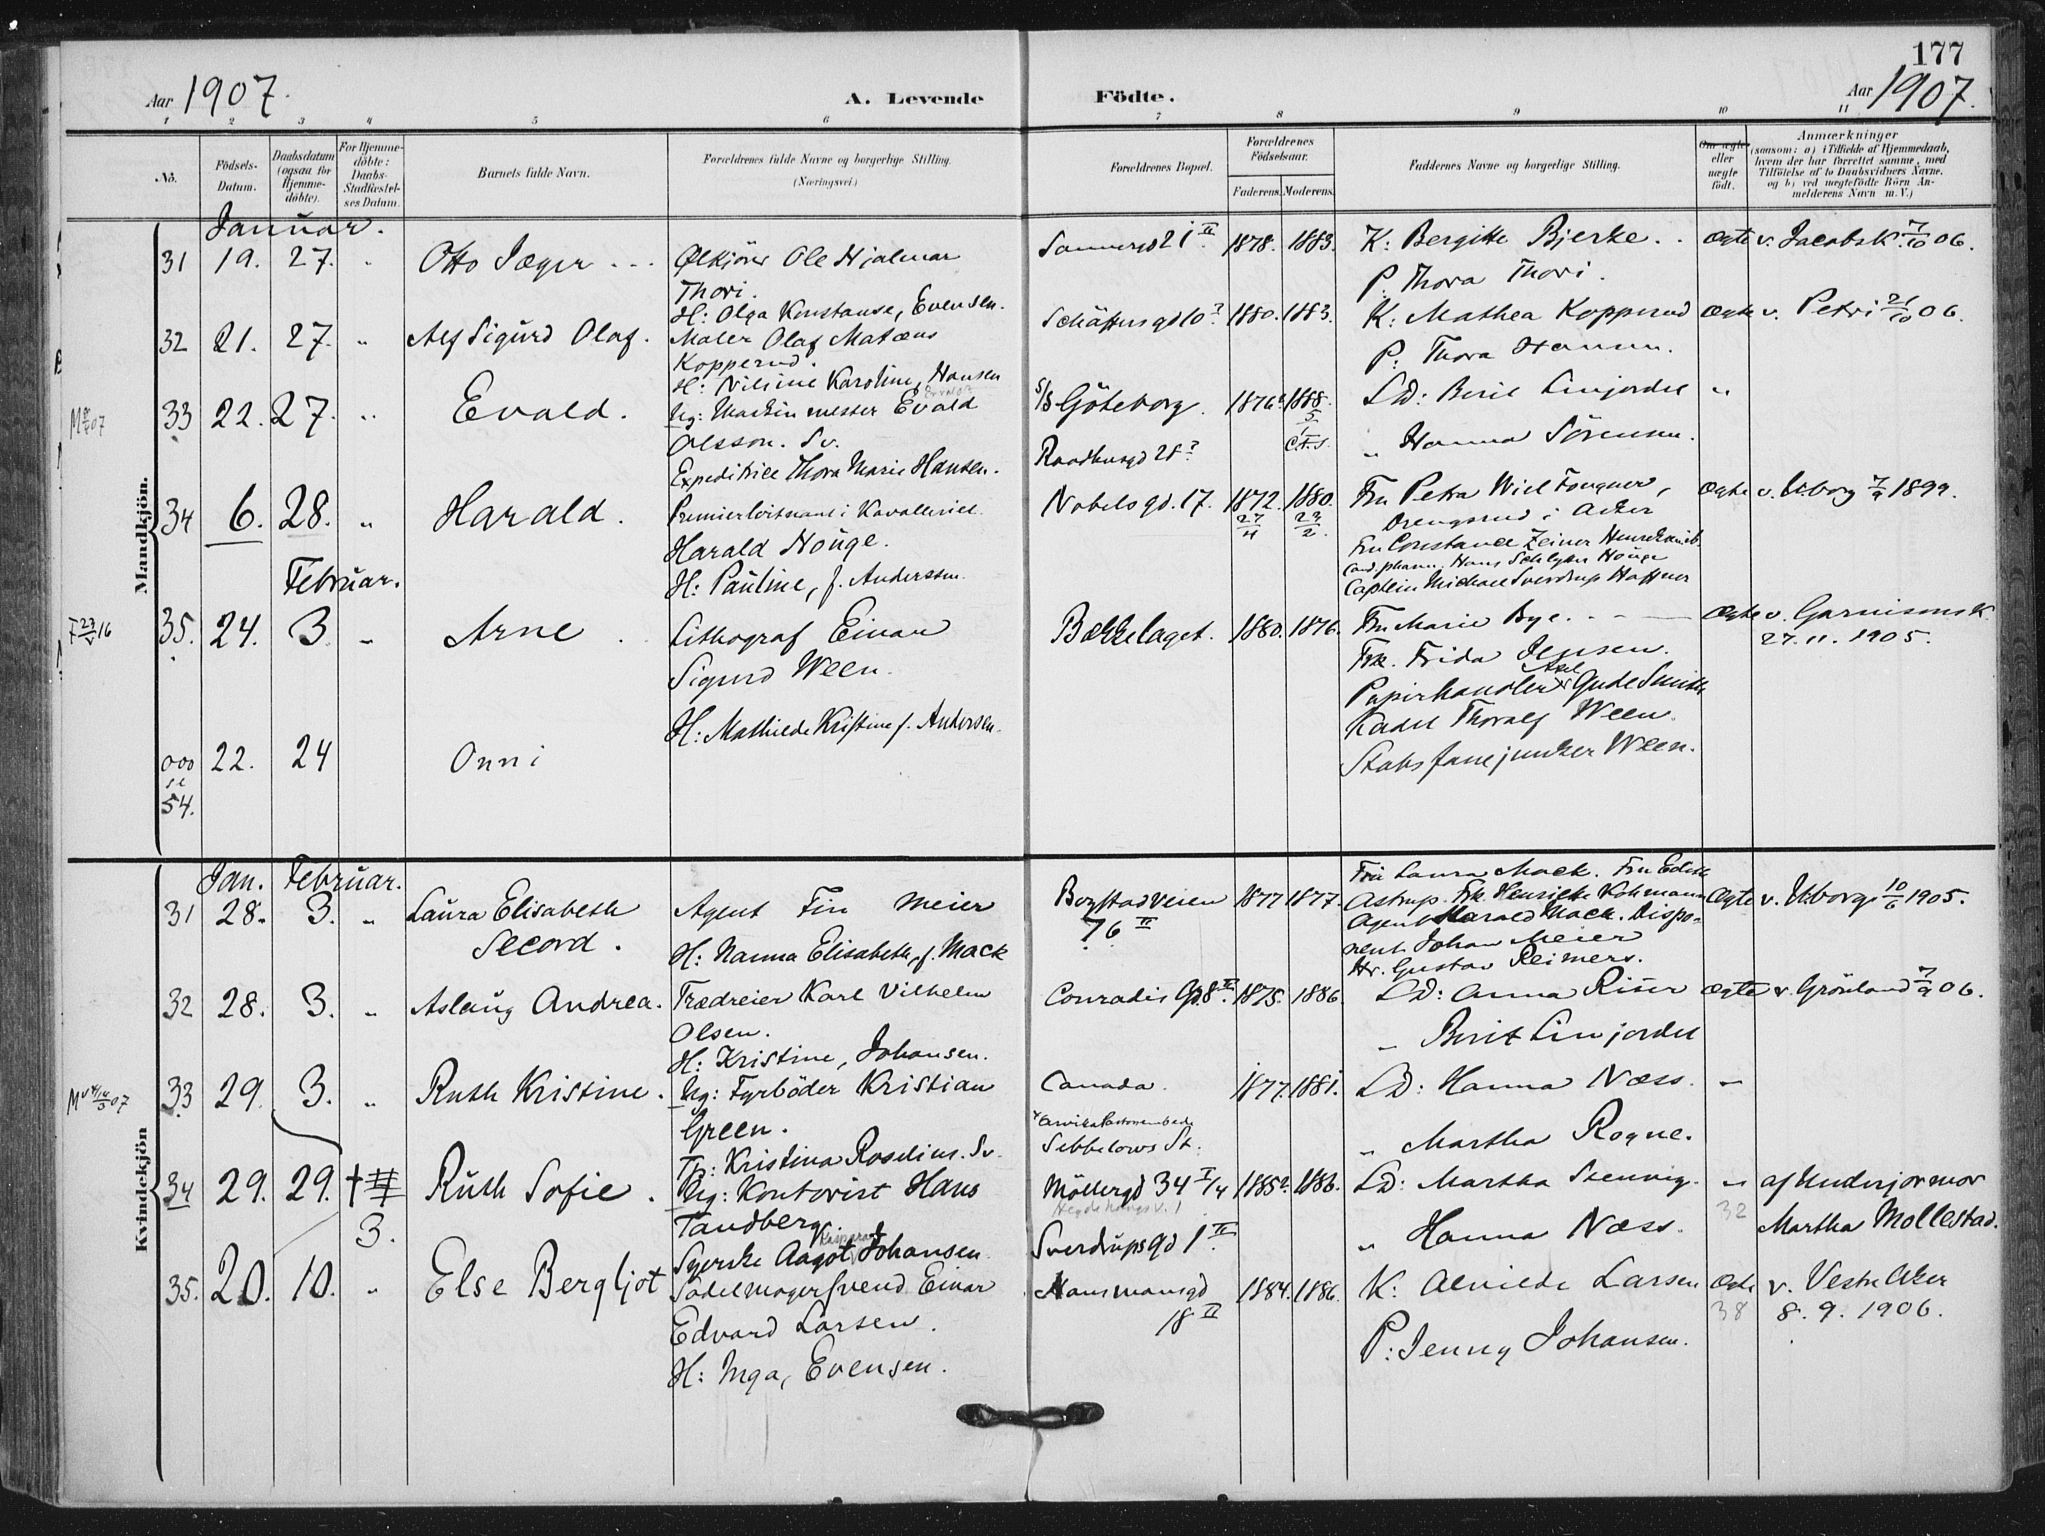 177
Aar 1907.
A. Levende Födte.
Aar 1907.
1 2 3 4 5 6 7 8 9 10 11
No.
Födsels-
Datum.
Daabsdatum
(ogsaa for
Hjemme-
döbte).
For Hjemme-
döbte:
Daabs-
Stadfæstel-
ses Datum.
Barnets fulde Navn.
Forældrenes fulde Navne og borgerlige Stilling.
(Næringsvei)
Forældrenes Bopæl.
Forældrenes
Födselsaar.
Faderens. Moderens.
Faddernes Navne og borgerlige Stilling.
Om ægte
eller
uægte
födt.
Anmærkninger
(saasom: a) i Tilfælde af Hjemmedaab,
hvem der har forrettet samme, med
Tilföielse af to Daabsvidners Navne.
og b) ved uægtefödte Börn An-
melderens Navn m.V.)
Mandkjön.
Januar.
31 19. 27. " Otto Jæger
Ølkjörer Ole Hjalmar
Thori.
H: Olga Konstanse, Evensen.
Sannergd 21 II 1878. 1883.
K: Bergitte Bjerke.
P: Thora Thori.
Ægte v. Jacobs K. 7/10 06.
32 21. 27. " Alf Sigurd Olaf.
Maler Olaf Matæus
Kopperud.
H: Nilsine Karoline, Hansen
Schäffersgd 10 1880. 1883.
K: Mathea Kopperud
P: Thora Hansen.
Ægte v. Petri 21/10 06.
33 22. 27. " Evald.
Ug: Maskinmester Evald
Olsson. Sv.
Expeditrice Thora Marie Hansen.
S/S Göteborg.
Raadhusgd 28
1876. 1888.
Ld: Berit Linjordet
" Hanna Sörensen.
"
34 6. 28. " Harald.
Premierløitnant i Kavalleriet
Harald Houge.
H: Pauline, f. Anderssen.
Nobels gd. 17. 1872. 27/4 1880. 29/2
Fru Petra Wiel Fougner,
Drengsrud i Asker
Fru Constance Zeiner Henriksen
Cand. pharm. Hans Schlytter Houge
Captein Michael Sverdrup Haffner
Ægte v. Uborg 7/9 1899.
Februar.
35. 24. 3. " Arne
Lithograf Einar
Sigurd Ween.
H: Mathilde Kristine f. Andersen.
Bækkelaget. 1880. 1876.
Fru Marie Bye.
Frk. Frida Jensen.
Papirhandler Axel Gude Smith
Kadet Thoralf Ween.
Stabsfanejunker Ween.
Ægte v. Garnisons K.
27. 11. 1905.
000
se
54.
22. 24 Onni
Kvindekjön
Jan. Februar.
31 28. 3. " Laura Elisabeth
Secord.
Agent Fin Meier
H: Nanna Elisabeth, f. Mack
Bogstadveien
76 II
1877 1877.
Fru Laura Mack. Fru Edith
Astrup. Frk. Henriette Kohmann
Agent Harald Mack. Dispo-
nent Johan Meier
Hr. Gustav Reimers.
Ægte v. Uborg 10/6 1905.
32 28. 3. " Aslaug Andrea.
Trædreier Karl Vilhelm
Olsen.
H: Kristine, Johansen.
Conradis Gd. 8 II 1875. 1886.
Ld: Anna Riser
" Berit Linjordet
Ægte v. Grönland 7/9 06.
33 29. 3. " Ruth Kristine.
Ug: Fyrböder Kristian
Green.
Tp: Kristina Roselius. Sv.
Canada.
Sebbelows St.
1877. 1881.
Ld: Hanna Næss.
" Martha Rogne.
"
34 29. 29. † 3. Ruth Sofie.
Ug: Kontorist Hans
Tandberg
Syerske Aagot Kaspara Johansen
Möllergd 34 I/4
Sverdrups gd 1 II
1885. 1886.
Ld: Martha Stenvig.
" Hanna Næss.
" 32
af Underjormor
Martha Mollestad.
35. 20. 10. " Else Bergljot
Sadelmager Svend Einar
Edvard Larsen.
H: Inga, Evensen.
Hausmansgd
18 II
1884. 1886.
K: Alvilde Larsen
P: Jenny Johansen.
Ægte 38
v. Vestre Aker
8. 9. 1906.